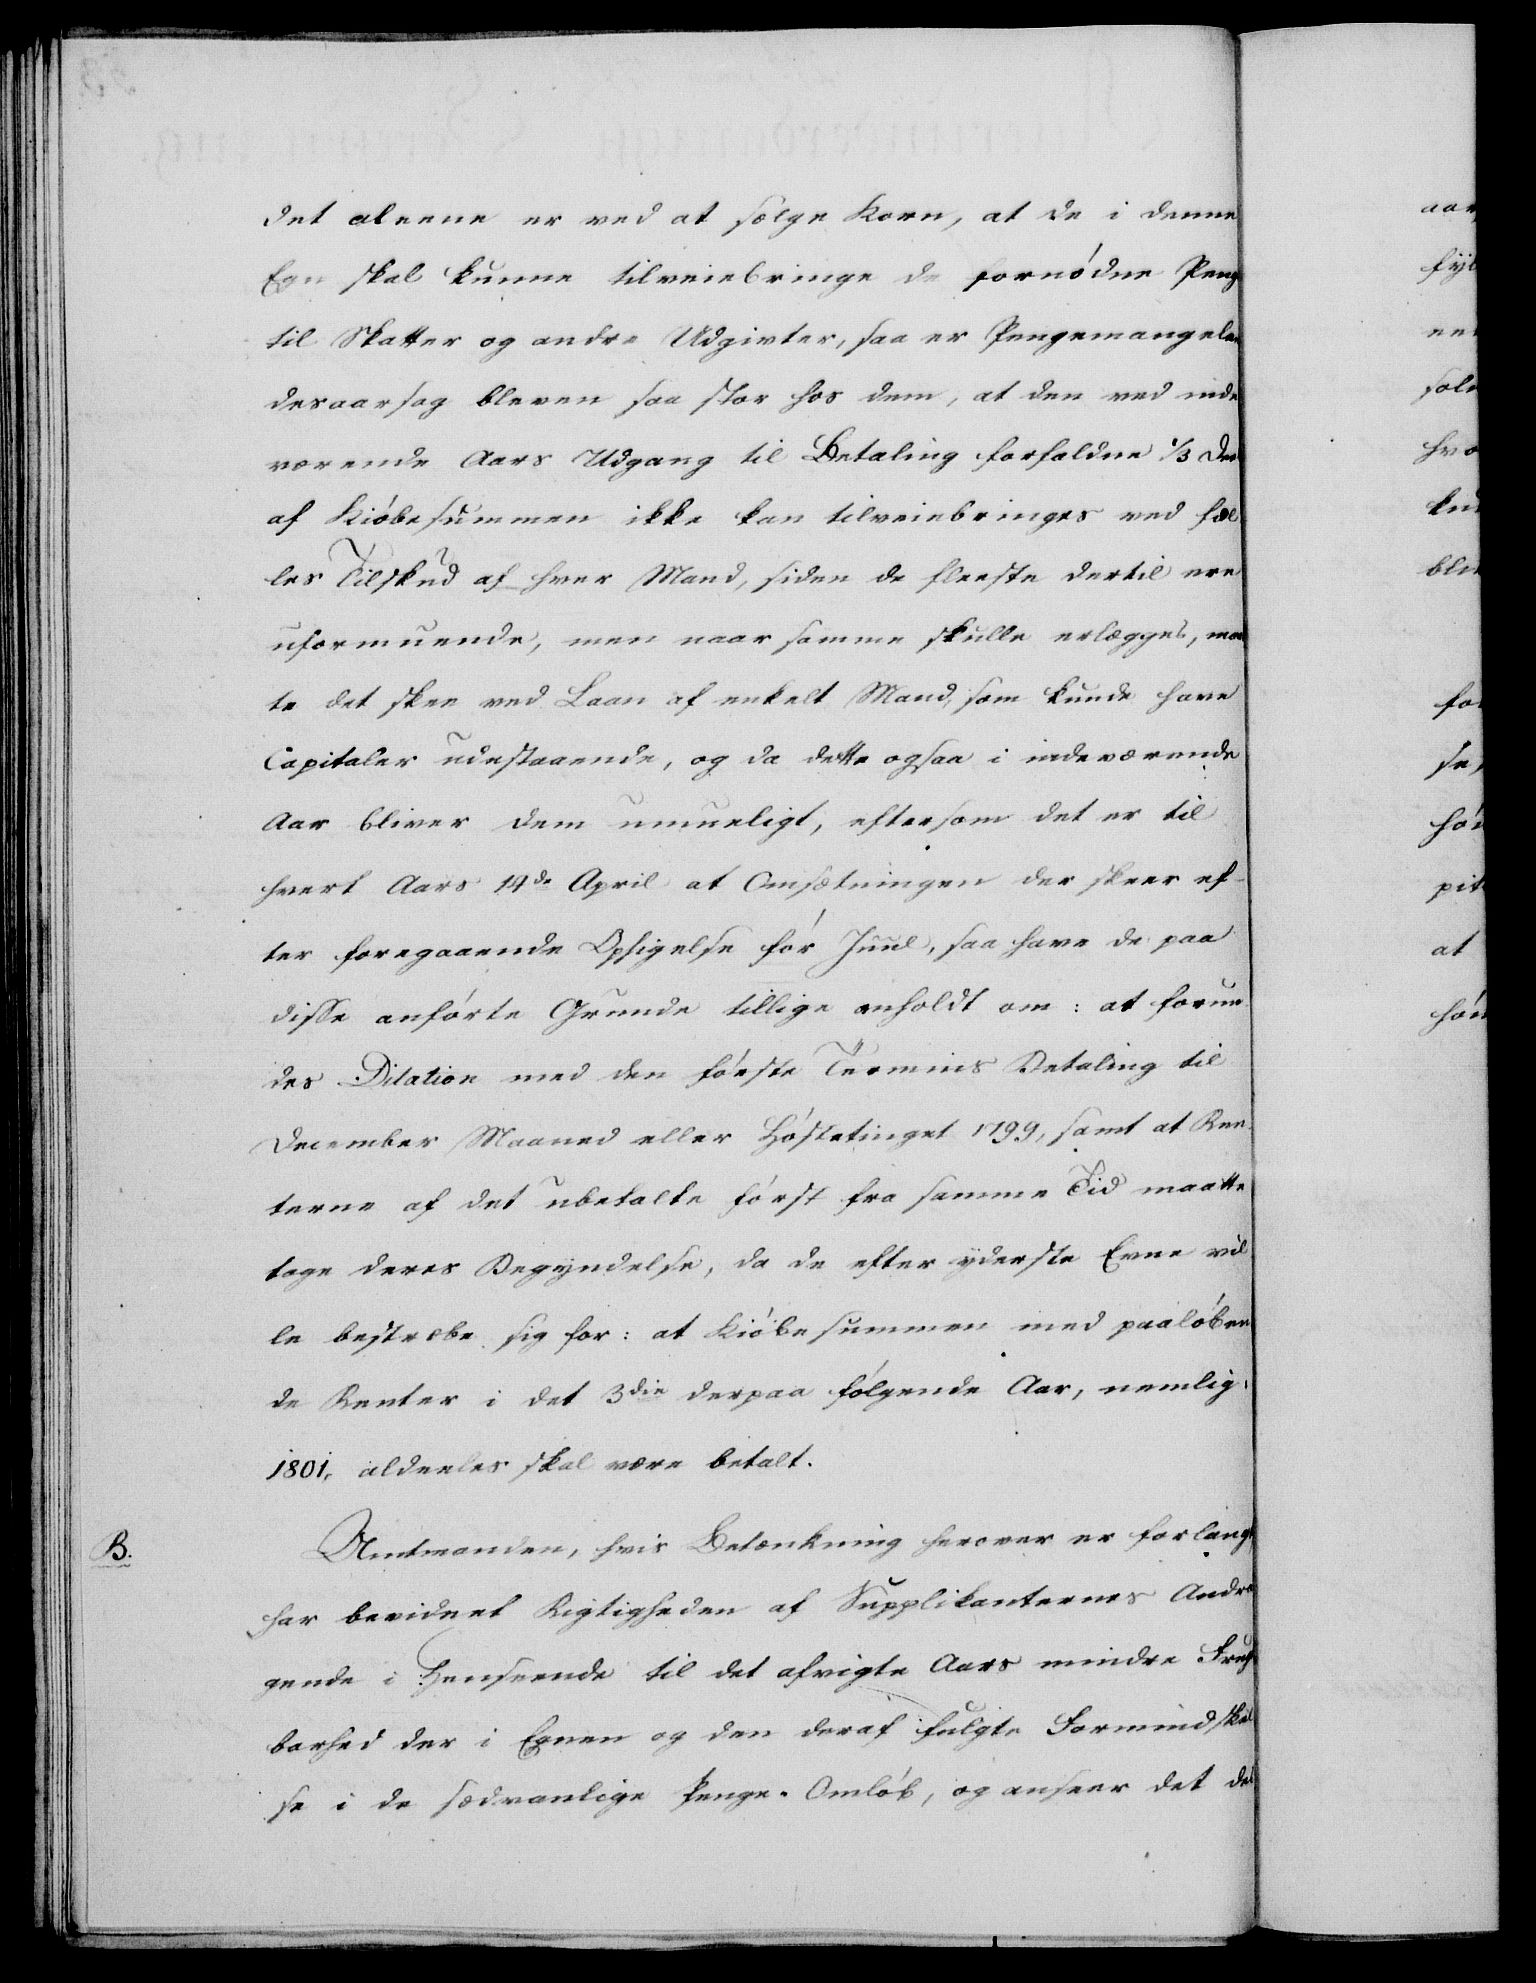 det aleene er ved at sælge Korn, at de i denne
Egn skal kunne tilveiebringe de fornødne Peng
til Skatter og andre Udgivter, saa er Pengemangelen
desaarsag bleven saa stor hos dem, at den ved inde
værende Aars Udgang til Betaling forfaldne 1/3 Deel
af Kiøbesummen ikke kan tilveiebringes ved fæl
les Tilskud af hver Mand, siden de fleeste dertil ere
uformuende, men naar samme skulle erlægges, maa
te det skee ved Laan af enkelt Mand, som kunde have
Capitaler udestaaende, og da dette ogsaa i indeværende
Aar bliver dem umueligt, eftersom det er til
hvert Aars 14de April at Omsætningen der skeer ef-
ter foregaaende Opsigelse før Juul, saa have de paa
disse anførte Grunde tillige anholdt om: at forun
des Dilation med den første Termins Betaling til
December Maaned eller Høstetinget 1799, samt at Ren-
terne af det ubetalte først fra samme Tid maatte
tage deres Begyndelse, da de efter yderste Evne vil
le bestræbe sig for: at Kiøbesummen med paaløben
de Renter i det 3die derpaa følgende Aar, nemlig:
1801, aldeeles skal være betalt.
B. Amtmanden, hvis Betænkning herover er forlangt
har bevidnet Rigtigheden af Supplikanternes Andra
gende i Henseende til det afvigte Aars mindre Frugt
barhed der i Egnen og den deraf fulgte Formindskel
se i de sædvanlige Penge-Omløb, og anseer det
aar
fyl
een
sole
hvo
kun
bli
for
se,
høi
pit
at
høi